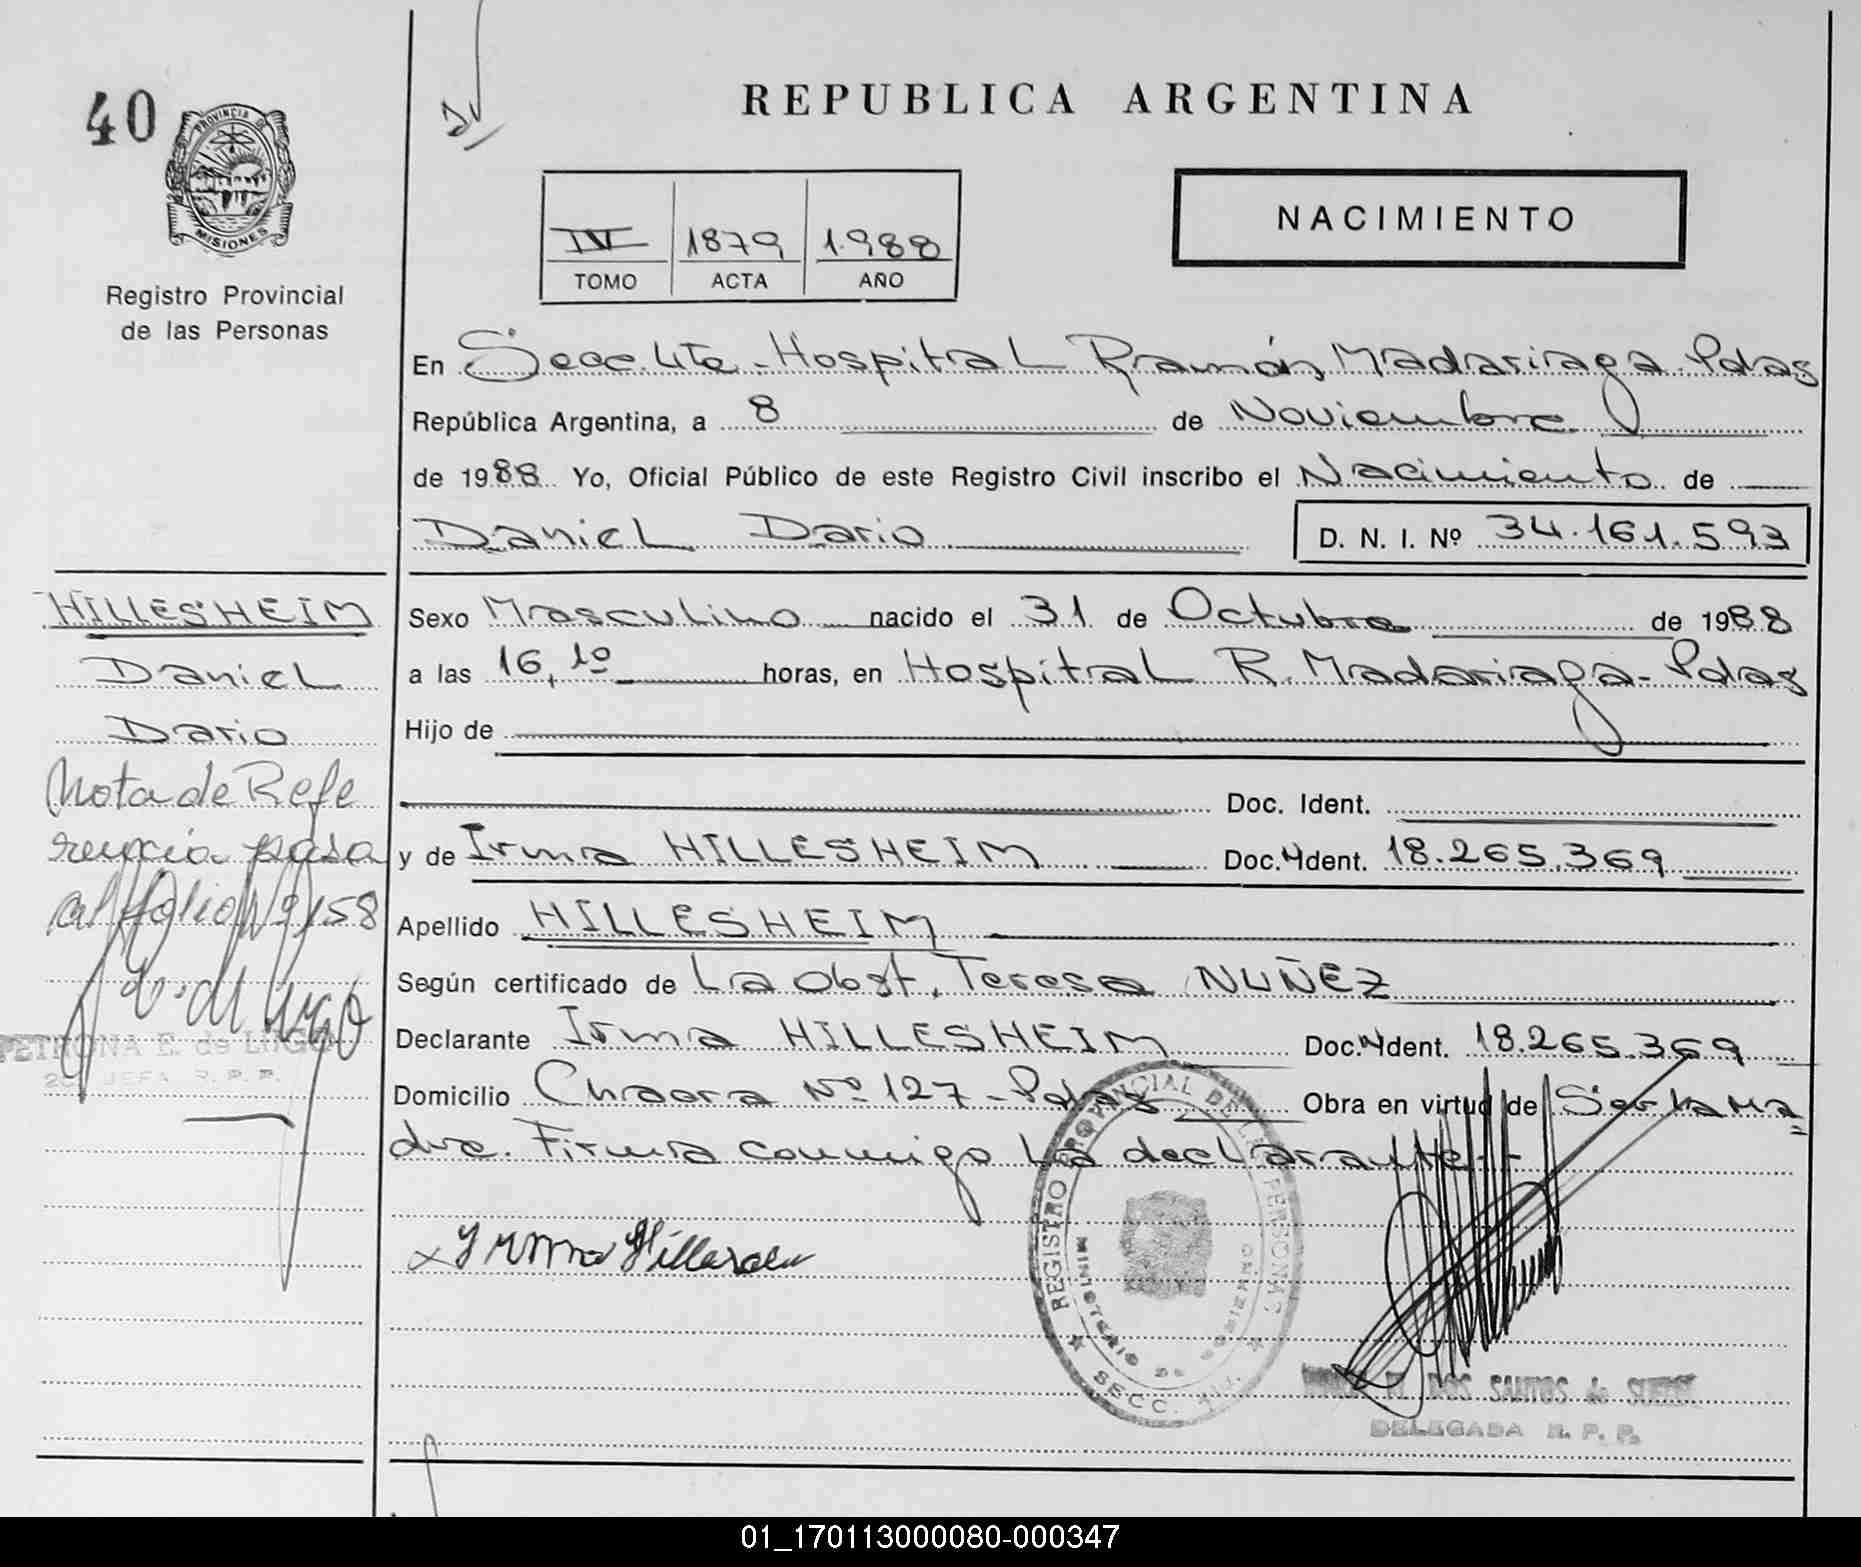 40
PROVINCIA DE
MISIONES
Registro Provincial
de las Personas
REPUBLICA ARGENTINA
NACIMIENTO
IV 1879 1.988
TOMO ACTA AÑO
En Secc. 4ta - Hospital Ramón Madariaga - Pdas
República Argentina, a 8 de Noviembre
de 1988 Yo, Oficial Público de este Registro Civil inscribo el Nacimiento de
Daniel Dario D. N. I. Nº 34.161.593
HILLESHEIM
Daniel
Dario
Nota de Refe
rencia pasa
al folio Nº 158
PETRONA E. de LUGO
JEFA R. P. P.
Sexo Masculino nacido el 31 de Octubre de 1988
a las 16,1º horas, en Hospital R. Madariaga - Pdas
Hijo de
Doc. Ident.
y de Irma HILLESHEIM Doc. Ident. 18.265.369
Apellido HILLESHEIM
Según certificado de La Obst. Teresa NUÑEZ
Declarante Irma HILLESHEIM Doc. Ident. 18.265.369
Domicilio Chacra Nº 127 - Pdas Obra en virtud de Ser la Ma
dre. Firma conmigo La declarante
Irma
REGISTRO PROVINCIAL DE LAS PERSONAS
MINISTERIO DE GOBIERNO
SECC.
DOS SANTOS de
DELEGADA R. P. P.
01_170113000080-000347